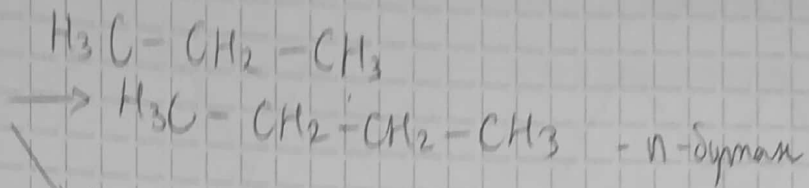 H₃C – CH₂ – CH₃
→ H₃C – CH₂ – CH₂ – CH₃ - н-бутан